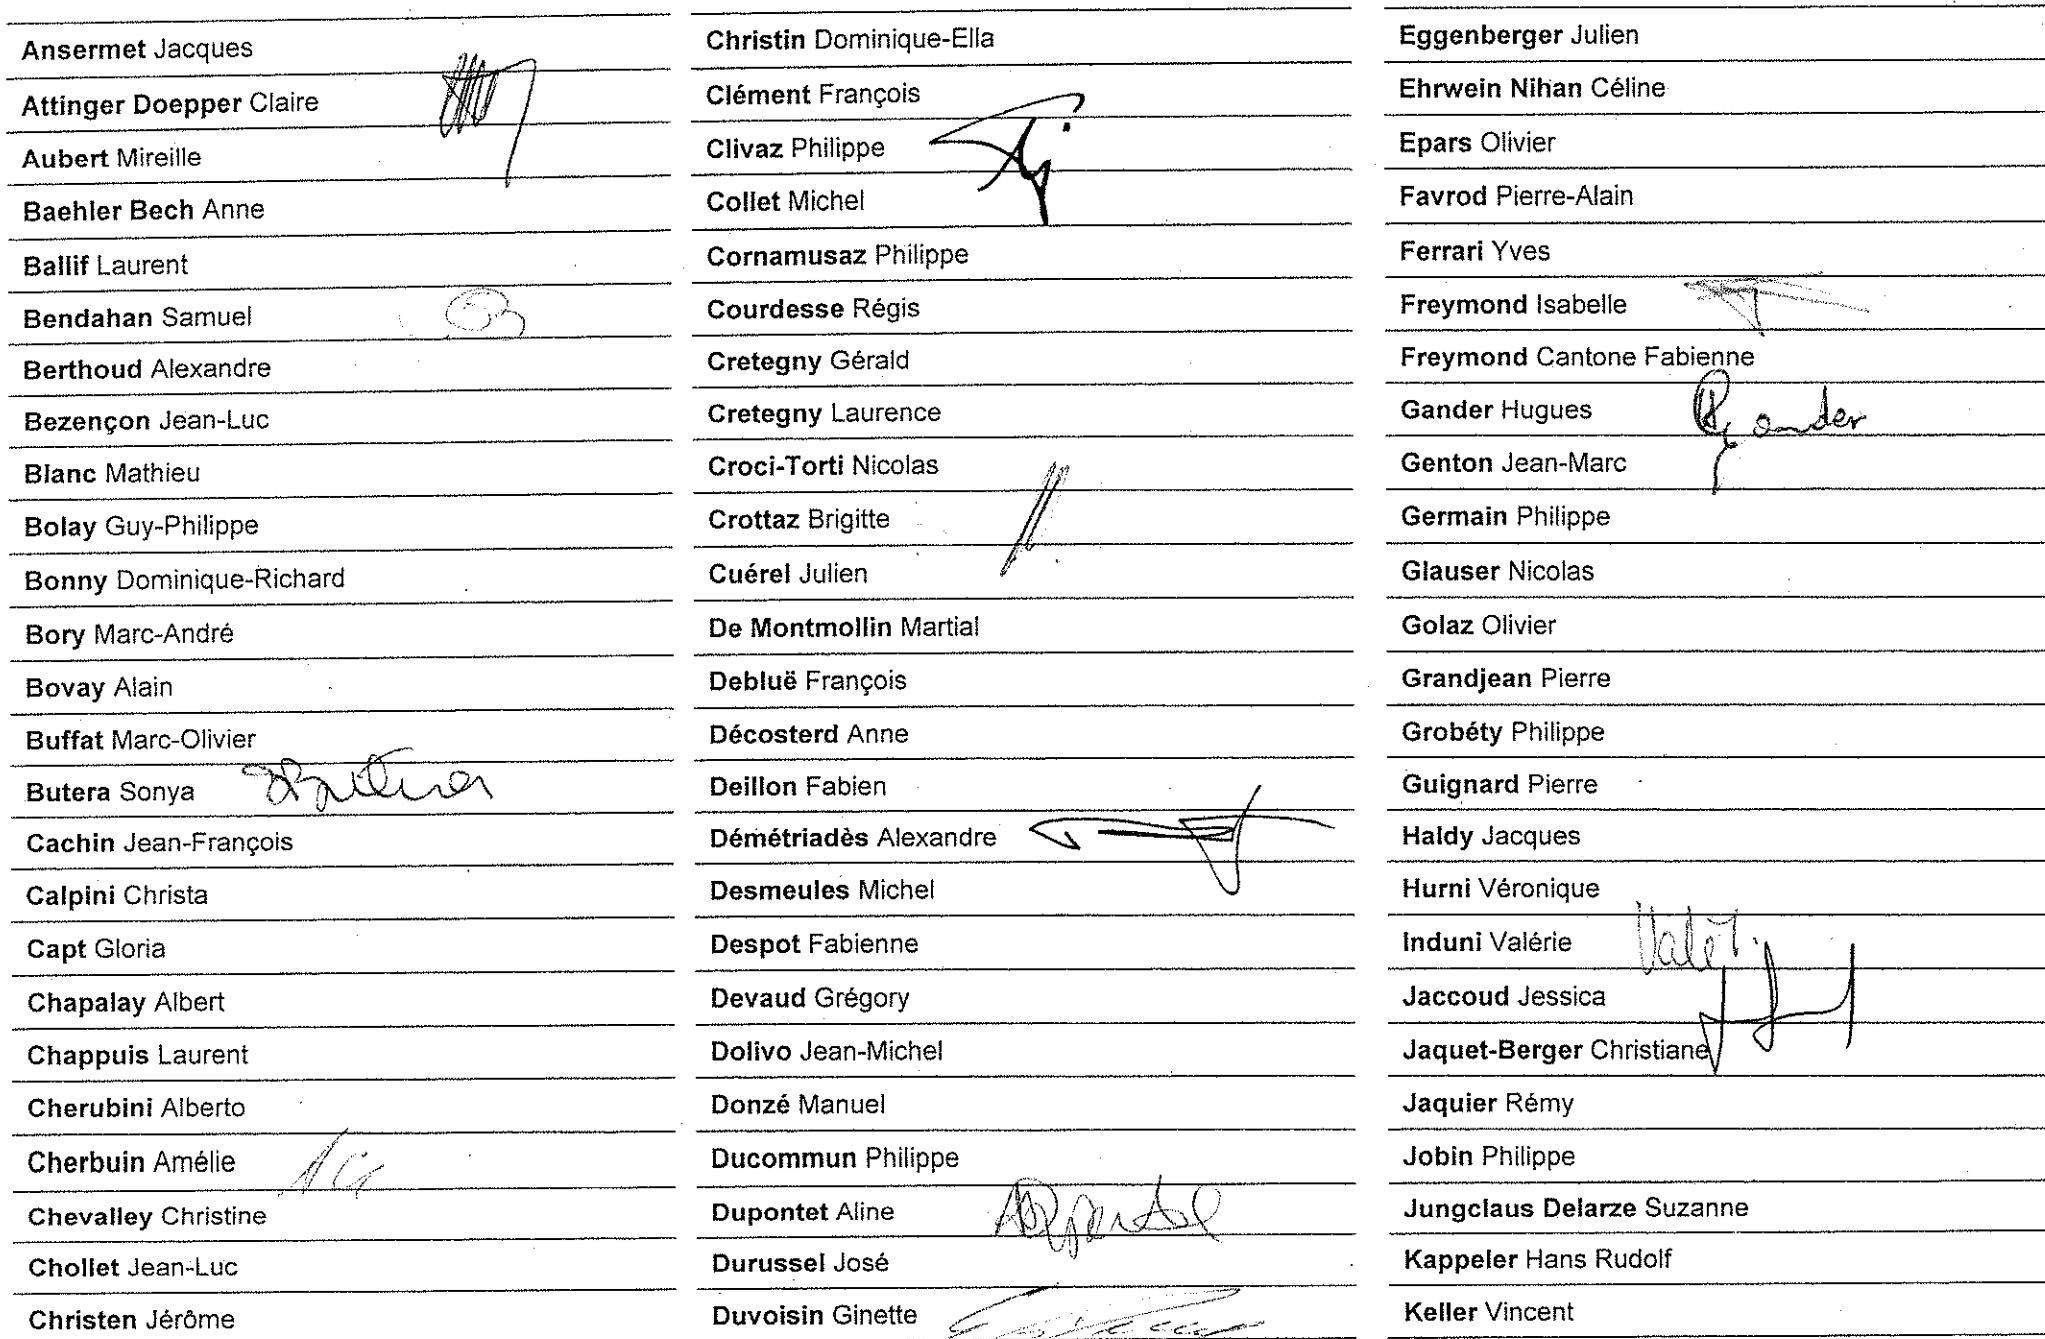 Ansermet Jacques
Attinger Doepper Claire
Aubert Mireille
Baehler Bech Anne
Ballif Laurent
Bendahan Samuel
Berthoud Alexandre
Bezençon Jean-Luc
Blanc Mathieu
Bolay Guy-Philippe
Bonny Dominique-Richard
Bory Marc-André
Bovay Alain
Buffat Marc-Olivier
Butera Sonya
Cachin Jean-François
Calpini Christa
Capt Gloria
Chapalay Albert
Chappuis Laurent
Cherubini Alberto
Cherbuin Amélie
Chevalley Christine
Chollet Jean-Luc
Christen Jérôme
Christin Dominique-Ella
Clément François
Clivaz Philippe
Collet Michel
Cornamusaz Philippe
Courdesse Régis
Cretegny Gérald
Cretegny Laurence
Croci-Torti Nicolas
Crottaz Brigitte
Cuérel Julien
De Montmollin Martial
Debluë François
Décosterd Anne
Deillon Fabien
Démétriadès Alexandre
Desmeules Michel
Despot Fabienne
Devaud Grégory
Dolivo Jean-Michel
Donzé Manuel
Ducommun Philippe
Dupontet Aline
Durussel José
Duvoisin Ginette
Eggenberger Julien
Ehrwein Nihan Céline
Epars Olivier
Favrod Pierre-Alain
Ferrari Yves
Freymond Isabelle
Freymond Cantone Fabienne
Gander Hugues
Genton Jean-Marc
Germain Philippe
Glauser Nicolas
Golaz Olivier
Grandjean Pierre
Grobéty Philippe
Guignard Pierre
Haldy Jacques
Hurni Véronique
Induni Valérie
Jaccoud Jessica
Jaquet-Berger Christiane
Jaquier Rémy
Jobin Philippe
Jungclaus Delarze Suzanne
Kappeler Hans Rudolf
Keller Vincent